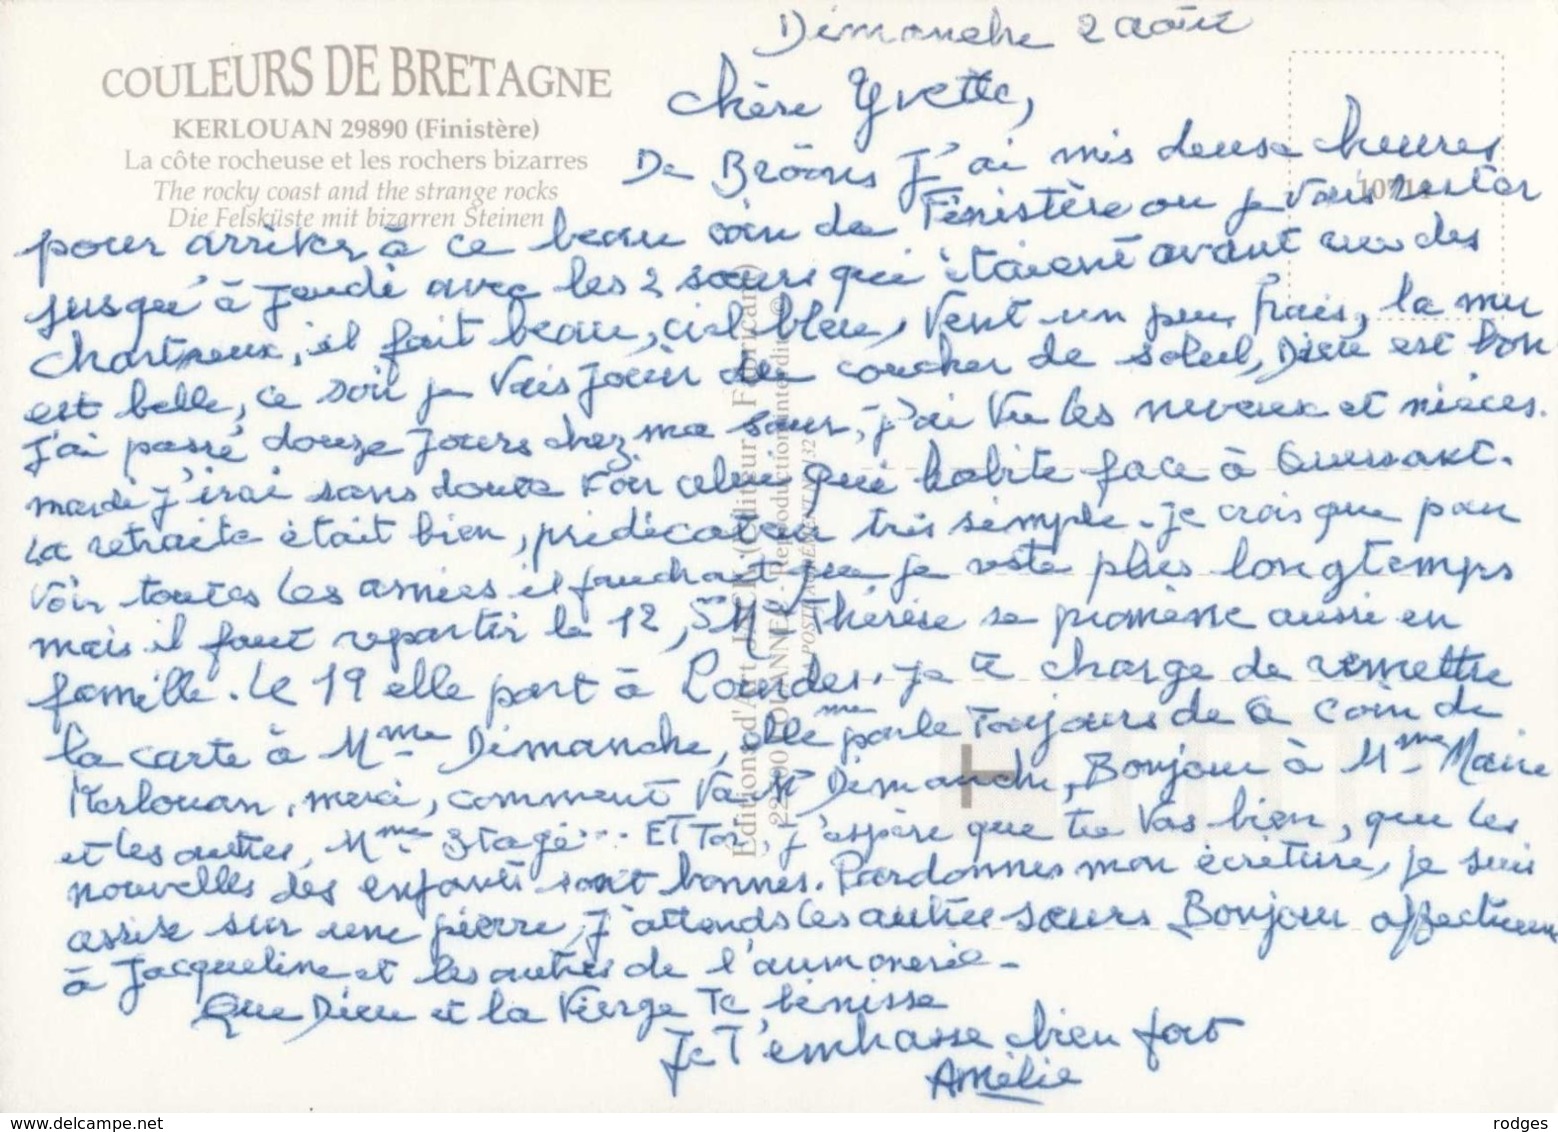 Dimanche 2 août
COULEURS DE BRETAGNE
KERLOUAN 29890 (Finistère)
La côte rocheuse et les rochers bizarres
The rocky coast and the strange rocks
Die Felsküste mit bizarren Steinen
10714
Chère Yvette,
De Brôons J'ai mis deux heures
pour arriver à ce beau coin de Finistère ou je vais rester
jusqu'à Jeudi avec les 2 sœurs qui étaient avant aux des
Chartreux, il fait beau, ciel bleu, Vent un peu frais, la mer
est belle, ce soir je vais jouir du coucher de soleil, Dieu est bon
J'ai passé douze Jours chez ma sœur, j'ai vu les neveux et nièces.
mardi j'irai sans doute voir celui qui habite face à Ouessant.
La retraite était bien, prédicateur très simple. je crois que pour
voir toutes les amies il faudrait que je reste plus longtemps
mais il faut repartir le 12, Sr M Thérèse se promène aussi en
famille. Le 19 elle part à Lourdes. je te charge de remettre
la carte à Mme Dimanche, elle me parle Toujours de ce coin de
Kerlouan, merci, comment va Mr Dimanche, Bonjour à Mme Marie
et les autres, Mme Stagé... ET Toi, j'espère que tu vas bien, que les
nouvelles des enfants sont bonnes. Pardonnes mon écriture, je suis
assise sur une pierre, J'attends les autres sœurs. Bonjour affectueux
à Jacqueline et les autres de l'aumonerie -
Que Dieu et la Vierge Te bénisse
Je T'embrasse bien fort
Amélie
Editions d'Art JACK (Editeur Fabricant)
Reproduction interdite ©
www.delcampe.net
rodges